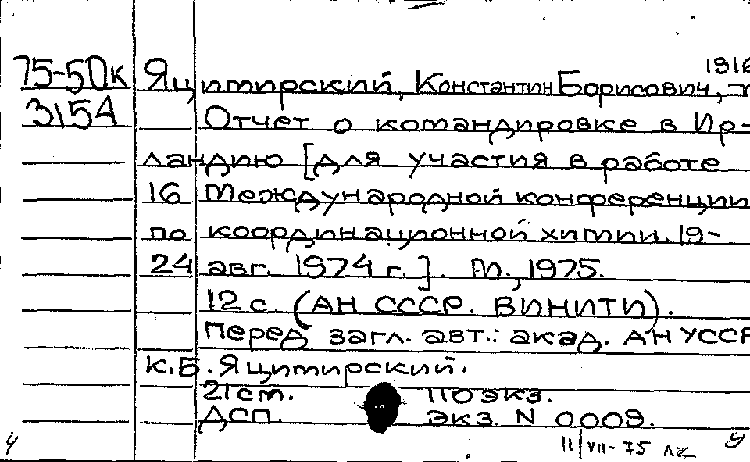 1916
75-50к Яцимирский, Константин Борисович,
3154 Отчет о командировке в Ир-
ландию [для участия в работе
16 Международной конференции
по координационной химии. 19-
24 авг. 1974 г.]. М., 1975.
12 с. (АН СССР. ВИНИТИ).
Перед загл. авт.: акад. АН УССР
К.Б. Яцимирский.
21 см. 110 экз.
ДСП. экз. N 0009.
11/VII-75